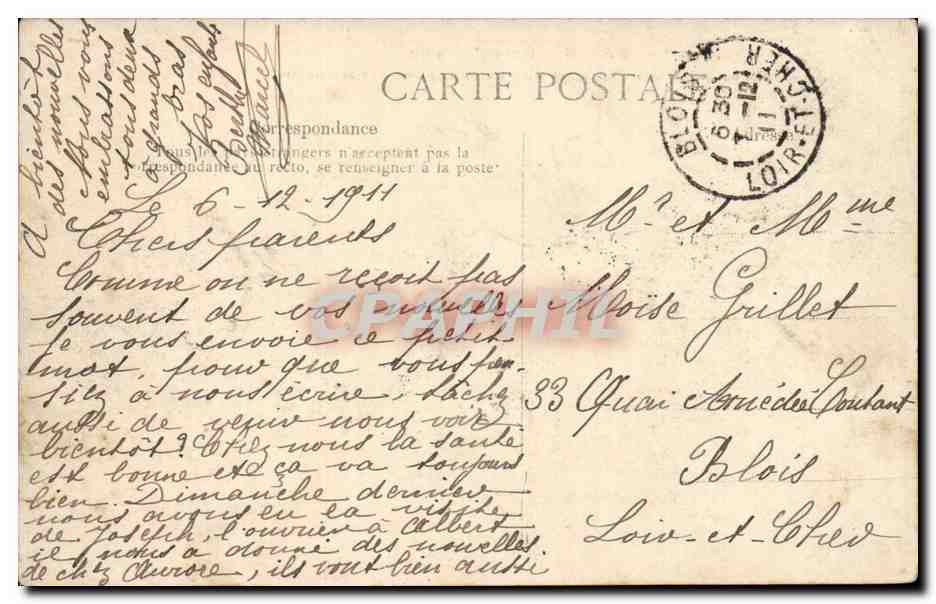 CARTE POSTALE
Correspondance
Tous les étrangers n'acceptent pas la
correspondance au recto, se renseigner à la poste
Adresse
BLOIS
LOIR-ET-CHER
6 30
7 - 12
11
Le 6-12-1911
Chers parents
Comme on ne reçoit pas
souvent de vos nouvelles
je vous envoie ce petit
mot, pour que vous pen-
siez à nous écrire, tâchez
aussi de venir nous voir
bientôt? Chez nous la santé
est bonne et ça va toujours
bien. Dimanche dernier
nous avons eu la visite
de Joseph, l'ouvrier à Albert
il nous a donné des nouvelles
de chez Aurore, ils vont bien aussi
A bientôt
des nouvelles
Nous vous
embrassons
tous deux
à grands
bras
Vos enfants
Mr et Mme
Moïse Grillet
33 Quai Amédée Contant
Blois
Loir-et-Cher
CPAPHIL